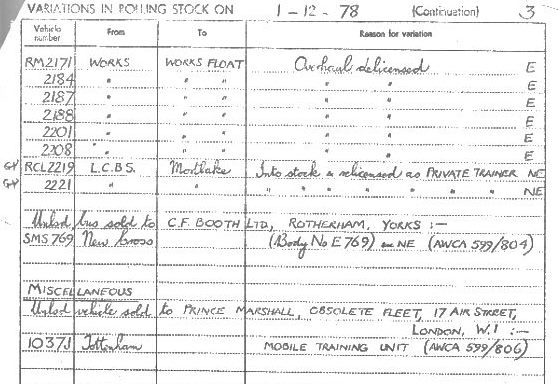 VARIATIONS IN ROLLING STOCK ON 1-12-78 (Continuation) 3
Vehicle number From To Reason for variation
RM2171 WORKS WORKS FLOAT Overhaul delicensed E
2184 " " " " " E
2187 " " " " " E
2188 " " " " " E
2201 " " " " " E
2208 " " " " " E
GY RCL2219 L.C.B.S. Mortlake Into stock & relicensed as PRIVATE TRAINER NE
GY 2221 " " " " " " " " NE
Unlsd bus sold to C.F. BOOTH LTD, ROTHERHAM, YORKS :—
SMS 769 New Cross (Body No E769) ex NE (AWCA 599/804)
MISCELLANEOUS
Unlsd vehicle sold to PRINCE MARSHALL, OBSOLETE FLEET, 17 AIR STREET,
LONDON, W.1 :—
1037J Tottenham MOBILE TRAINING UNIT (AWCA 599/806)